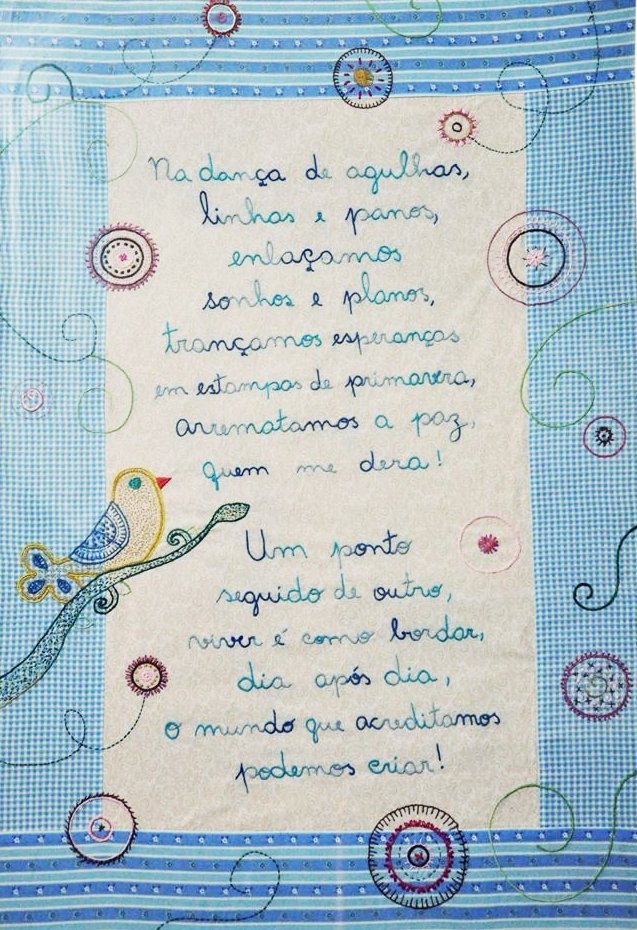 Na dança de agulhas,
linhas e panos,
enlaçamos
sonhos e planos,
trançamos esperanças
em estampas de primavera,
arrematamos a paz,
quem me dera!
Um ponto
seguido de outro,
viver é como bordar,
dia após dia,
o mundo que acreditamos
podemos criar!